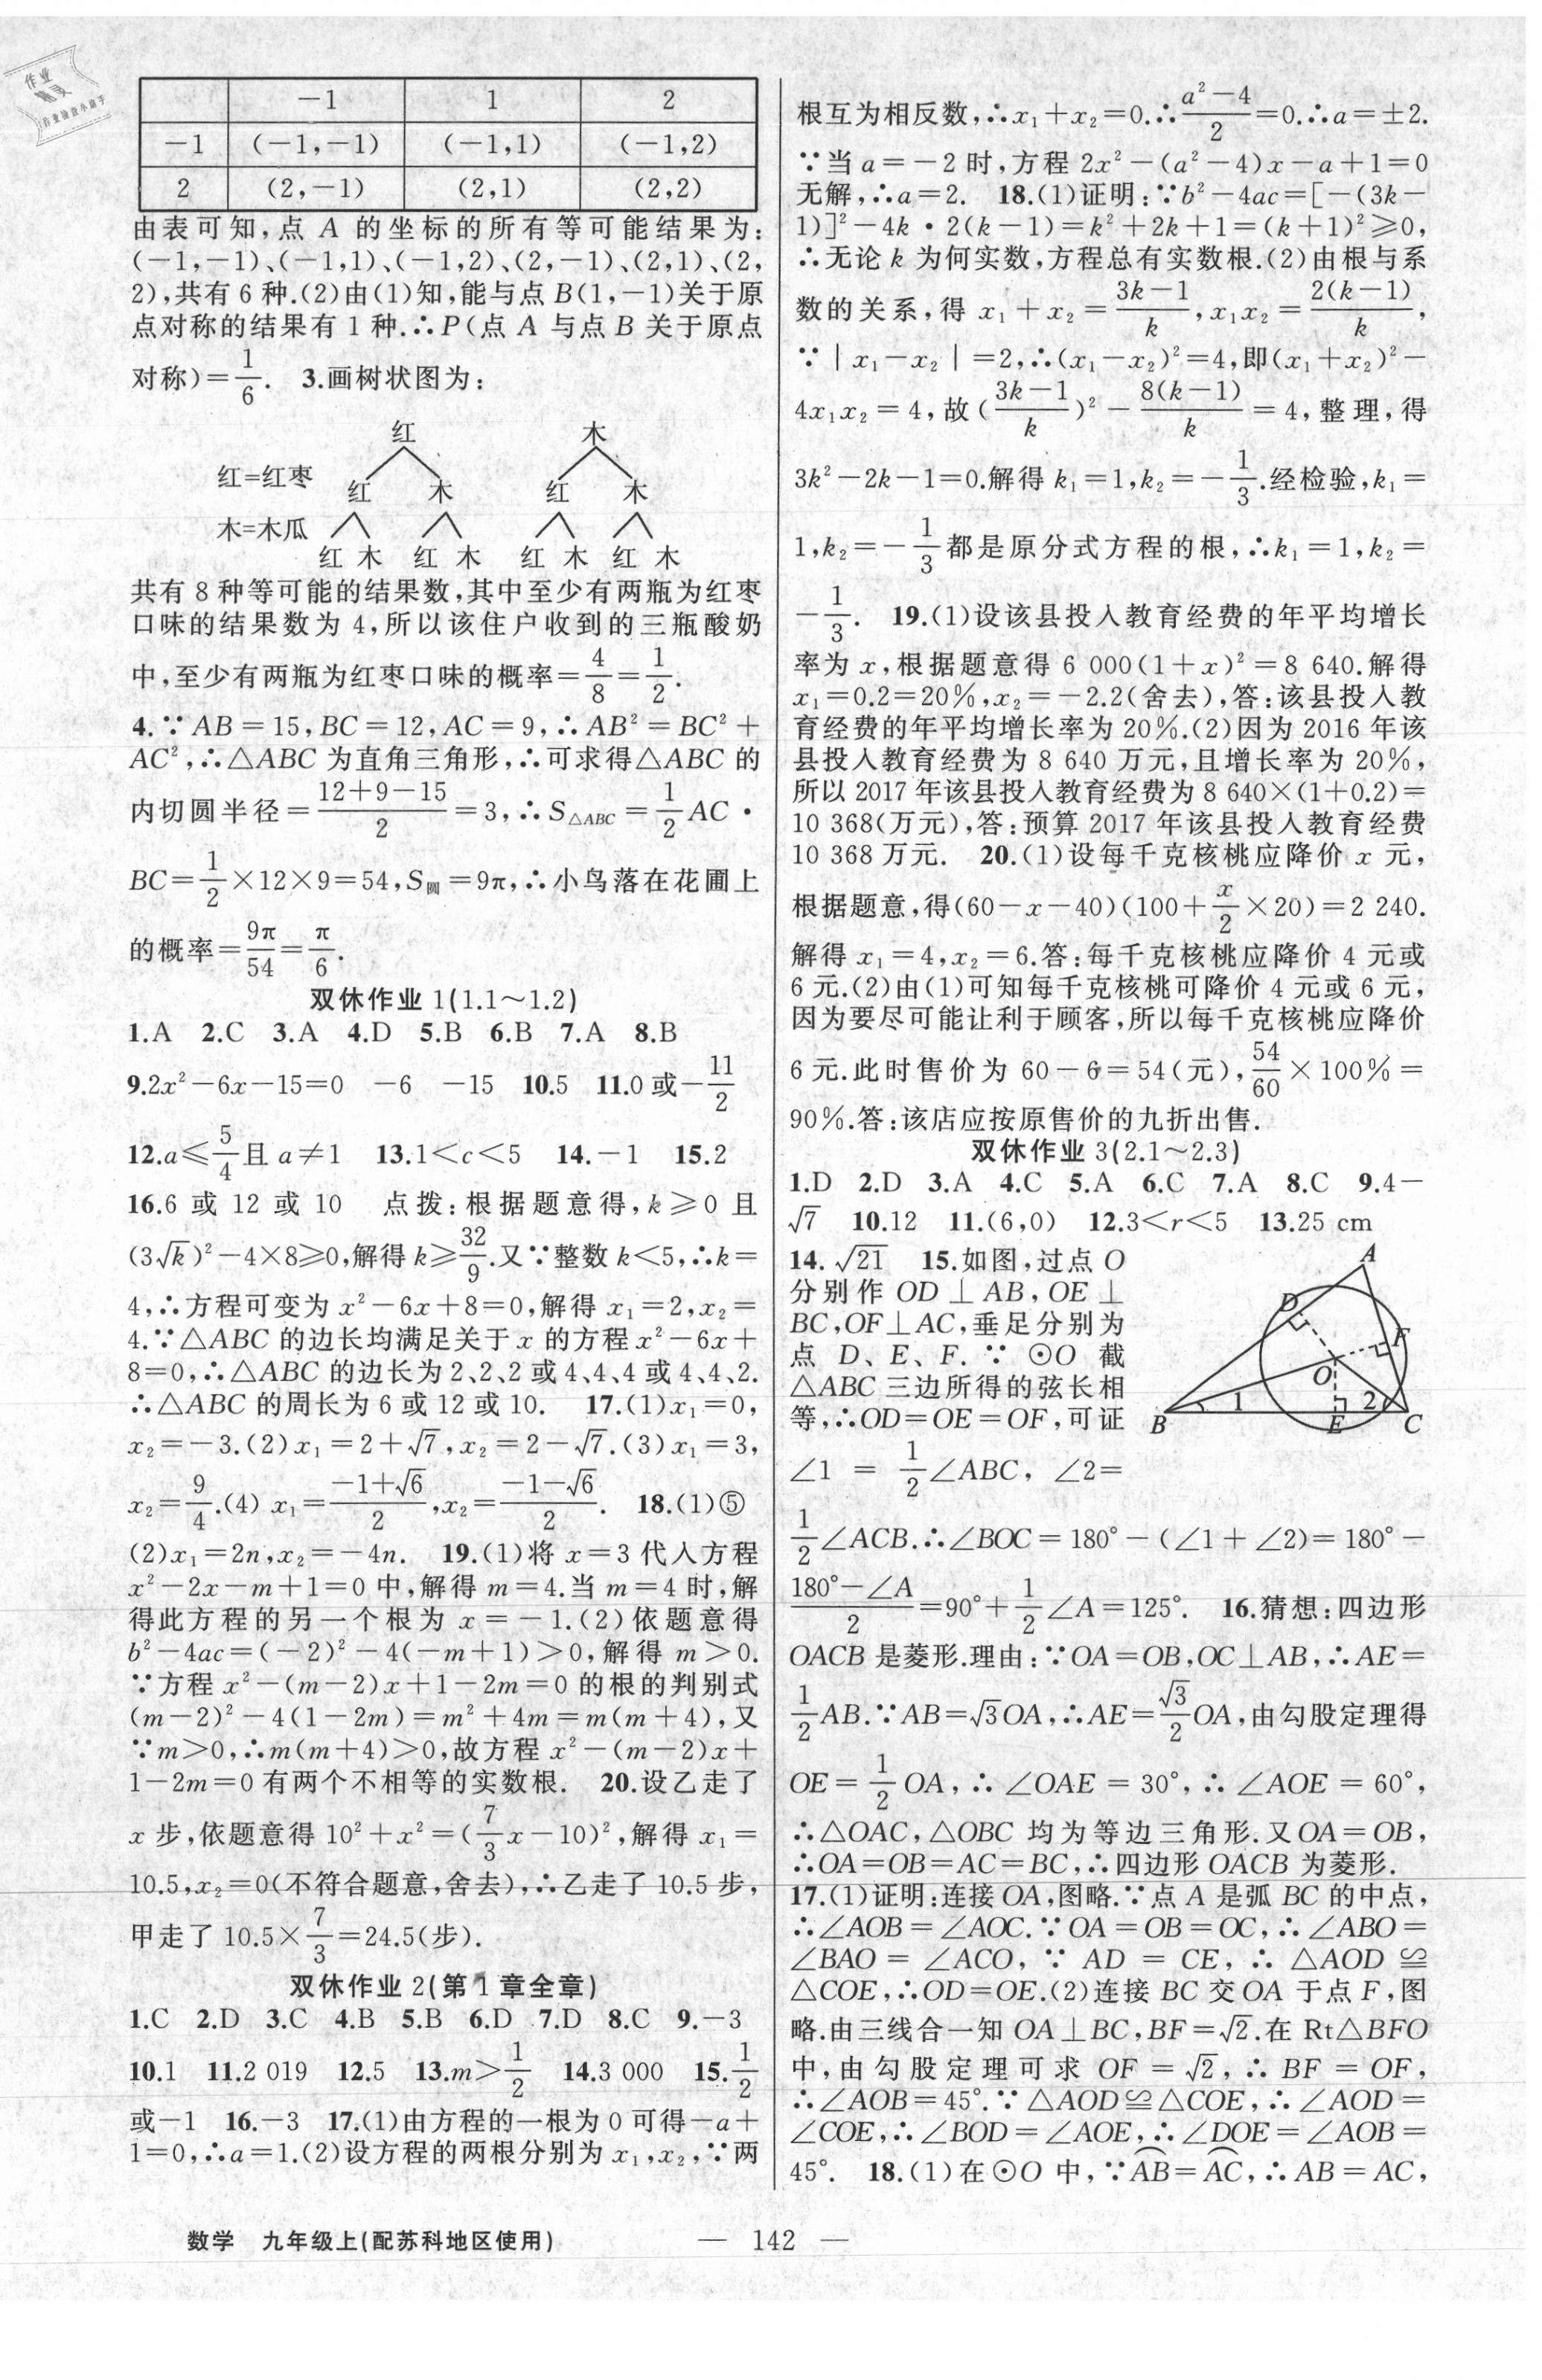 作业
作业检查小助手
−1 1 2
−1 (−1,−1) (−1,1) (−1,2)
2 (2,−1) (2,1) (2,2)
由表可知,点 A 的坐标的所有等可能结果为:
(−1,−1)、(−1,1)、(−1,2)、(2,−1)、(2,1)、(2,
2),共有 6 种.(2)由(1)知,能与点 B(1,−1)关于原
点对称的结果有 1 种.∴P(点 A 与点 B 关于原点
对称)=1/6. 3.画树状图为:
红 木
红=红枣 红 木 红 木
木=木瓜
红 木 红 木 红 木 红 木
共有 8 种等可能的结果数,其中至少有两瓶为红枣
口味的结果数为 4,所以该住户收到的三瓶酸奶
中,至少有两瓶为红枣口味的概率=4/8=1/2.
4.∵AB=15,BC=12,AC=9,∴AB²=BC²+
AC²,∴△ABC 为直角三角形,∴可求得△ABC 的
内切圆半径=(12+9−15)/2=3,∴S△ABC=1/2AC·
BC=1/2×12×9=54,S圆=9π,∴小鸟落在花圃上
的概率=9π/54=π/6.
双休作业 1(1.1～1.2)
1.A 2.C 3.A 4.D 5.B 6.B 7.A 8.B
9.2x²−6x−15=0 −6 −15 10.5 11.0 或−11/2
12.a≤5/4且 a≠1 13.1<c<5 14.−1 15.2
16.6 或 12 或 10 点拨:根据题意得,k≥0 且
(3√k)²−4×8≥0,解得 k≥32/9.又∵整数 k<5,∴k=
4,∴方程可变为 x²−6x+8=0,解得 x₁=2,x₂=
4.∵△ABC 的边长均满足关于 x 的方程 x²−6x+
8=0,∴△ABC 的边长为 2、2、2 或 4、4、4 或 4、4、2.
∴△ABC 的周长为 6 或 12 或 10. 17.(1)x₁=0,
x₂=−3.(2)x₁=2+√7,x₂=2−√7.(3)x₁=3,
x₂=9/4.(4) x₁=(−1+√6)/2,x₂=(−1−√6)/2. 18.(1)⑤
(2)x₁=2n,x₂=−4n. 19.(1)将 x=3 代入方程
x²−2x−m+1=0 中,解得 m=4.当 m=4 时,解
得此方程的另一个根为 x=−1.(2)依题意得
b²−4ac=(−2)²−4(−m+1)>0,解得 m>0.
∵方程 x²−(m−2)x+1−2m=0 的根的判别式
(m−2)²−4(1−2m)=m²+4m=m(m+4),又
∵m>0,∴m(m+4)>0,故方程 x²−(m−2)x+
1−2m=0 有两个不相等的实数根. 20.设乙走了
x 步,依题意得 10²+x²=(7/3x−10)²,解得 x₁=
10.5,x₂=0(不符合题意,舍去),∴乙走了 10.5 步,
甲走了 10.5×7/3=24.5(步).
双休作业 2(第 1 章全章)
1.C 2.D 3.C 4.B 5.B 6.D 7.D 8.C 9.−3
10.1 11.2 019 12.5 13.m>1/2 14.3 000 15.1/2
或−1 16.−3 17.(1)由方程的一根为 0 可得−a+
1=0,∴a=1.(2)设方程的两根分别为 x₁,x₂,∵两
根互为相反数,∴x₁+x₂=0.∴(a²−4)/2=0.∴a=±2.
∵当 a=−2 时,方程 2x²−(a²−4)x−a+1=0
无解,∴a=2. 18.(1)证明:∵b²−4ac=[−(3k−
1)]²−4k·2(k−1)=k²+2k+1=(k+1)²≥0,
∴无论 k 为何实数,方程总有实数根.(2)由根与系
数的关系,得 x₁+x₂=(3k−1)/k,x₁x₂=2(k−1)/k,
∵|x₁−x₂|=2,∴(x₁−x₂)²=4,即(x₁+x₂)²−
4x₁x₂=4,故((3k−1)/k)²−8(k−1)/k=4,整理,得
3k²−2k−1=0.解得 k₁=1,k₂=−1/3.经检验,k₁=
1,k₂=−1/3都是原分式方程的根,∴k₁=1,k₂=
−1/3. 19.(1)设该县投入教育经费的年平均增长
率为 x,根据题意得 6 000(1+x)²=8 640.解得
x₁=0.2=20%,x₂=−2.2(舍去),答:该县投入教
育经费的年平均增长率为 20%.(2)因为 2016 年该
县投入教育经费为 8 640 万元,且增长率为 20%,
所以 2017 年该县投入教育经费为 8 640×(1+0.2)=
10 368(万元),答:预算 2017 年该县投入教育经费
10 368 万元. 20.(1)设每千克核桃应降价 x 元,
根据题意,得(60−x−40)(100+x/2×20)=2 240.
解得 x₁=4,x₂=6.答:每千克核桃应降价 4 元或
6 元.(2)由(1)可知每千克核桃可降价 4 元或 6 元,
因为要尽可能让利于顾客,所以每千克核桃应降价
6 元.此时售价为 60−6=54(元),54/60×100%=
90%.答:该店应按原售价的九折出售.
双休作业 3(2.1～2.3)
1.D 2.D 3.A 4.C 5.A 6.C 7.A 8.C 9.4−
√7 10.12 11.(6,0) 12.3<r<5 13.25 cm
14.√21 15.如图,过点 O
分别作 OD⊥AB,OE⊥
BC,OF⊥AC,垂足分别为
点 D、E、F.∵⊙O 截
△ABC 三边所得的弦长相
等,∴OD=OE=OF,可证
∠1=1/2∠ABC,∠2=
A
D
F
O
1 2
B E C
1/2∠ACB.∴∠BOC=180°−(∠1+∠2)=180°−
(180°−∠A)/2=90°+1/2∠A=125°. 16.猜想:四边形
OACB 是菱形.理由:∵OA=OB,OC⊥AB,∴AE=
1/2AB.∵AB=√3OA,∴AE=√3/2OA,由勾股定理得
OE=1/2OA,∴∠OAE=30°,∴∠AOE=60°,
∴△OAC,△OBC 均为等边三角形.又OA=OB,
∴OA=OB=AC=BC,∴四边形 OACB 为菱形.
17.(1)证明:连接 OA,图略.∵点 A 是弧 BC 的中点,
∴∠AOB=∠AOC.∵OA=OB=OC,∴∠ABO=
∠BAO=∠ACO,∵AD=CE,∴△AOD≌
△COE,∴OD=OE.(2)连接 BC 交 OA 于点 F,图
略.由三线合一知 OA⊥BC,BF=√2.在 Rt△BFO
中,由勾股定理可求 OF=√2,∴BF=OF,
∴∠AOB=45°.∵△AOD≌△COE,∴∠AOD=
∠COE,∴∠BOD=∠AOE,∴∠DOE=∠AOB=
45°. 18.(1)在⊙O 中,∵A͡B=A͡C,∴AB=AC,
数学 九年级上(配苏科地区使用) — 142 —